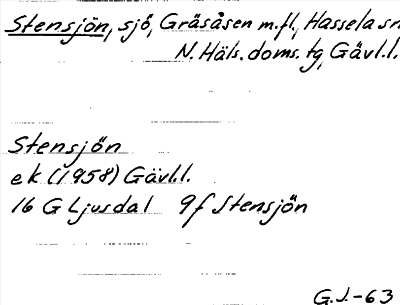 Stensjön, sjö, Gräsåsen m.fl., Hassela sn
N. Häls. doms. tg, Gävl.l.
Stensjön
ek (1958) Gävl.l.
16 G Ljusdal 9f Stensjön
G.J.-63